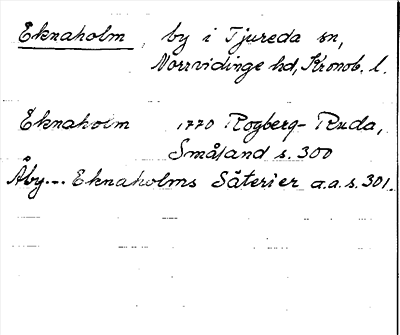 Eknaholm, by i Tjureda sn,
Norrvidinge hd, Kronob. l.
Eknaholm 1770 Rogberg-Ruda,
Småland s. 300
Åby... Eknaholms Säterier a.a. s. 301.